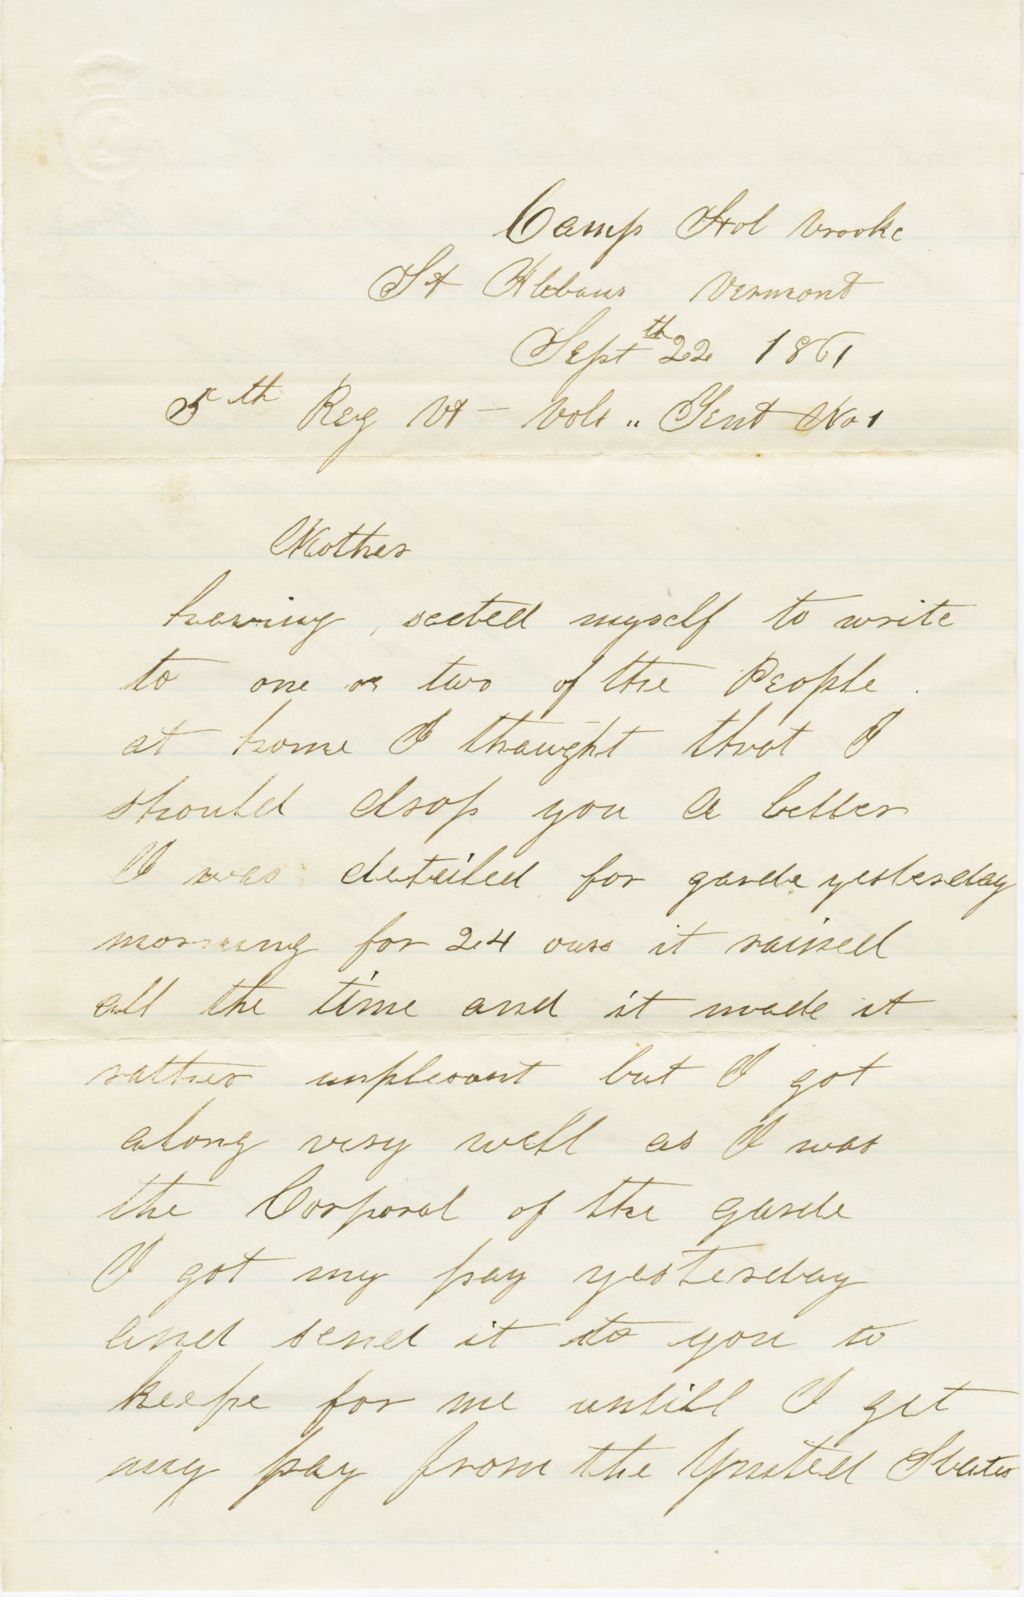 Camp Hol brooke
St Albans Vermont
Sept th 22 1861
5th Reg Vt - Vols " Tent No 1
Mother
haveing, seeted myself to write
to one or two of the People.
at home I thaught that I
should drop you a letter
I was detailed for garde yesterday
morning for 24 ours it rained
all the time and it made it
rather unplesant but I got
along very well as I was
the Corporal of the garde
I got my pay yesterday
and send it to you to
keepe for me untill I get
my pay from the United States